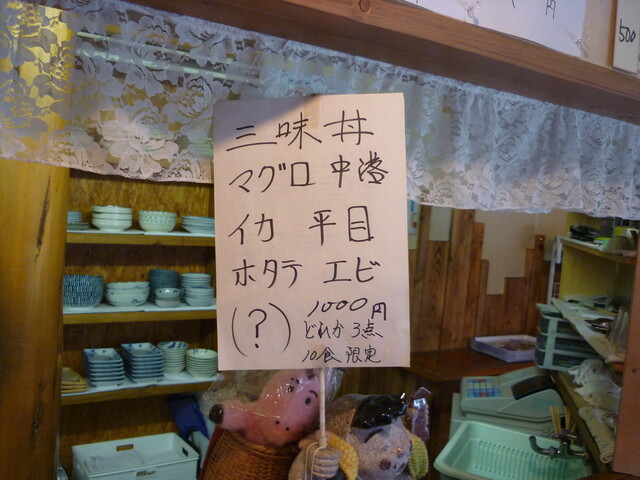 円
500
三味丼
マグロ 中落
イカ 平目
ホタテ エビ
(?) 1000円
どれか3点
10食限定